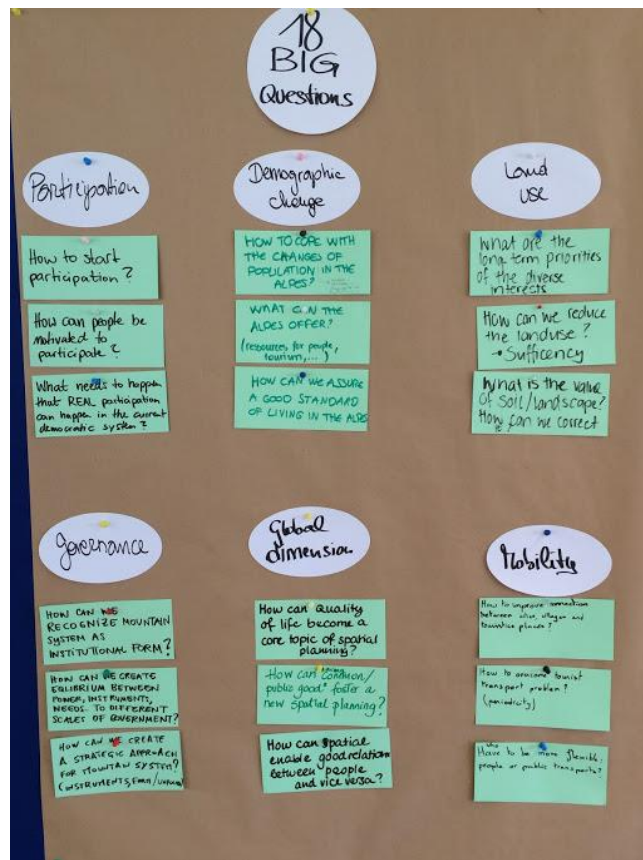 18
BIG
Questions
Participation
How to start
participation?
How can people be
motivated to
participate?
What needs to happen
that REAL participation
can happen in the current
democratic system?
Demographic
change
HOW TO COPE WITH
THE CHANGES OF
POPULATION IN THE
ALPES?
WHAT CAN THE
ALPES OFFER?
(ressources, for people,
tourism,...)
HOW CAN WE ASSURE
A GOOD STANDARD
OF LIVING IN THE ALPS
Land
use
What are the
long term priorities
of the diverse
interests
How can we reduce
the landuse?
→ Sufficency
What is the value
of soil/landscape?
How can we correct
Governance
HOW CAN WE
RECOGNIZE MOUNTAIN
SYSTEM AS
INSTITUTIONAL FORM?
HOW CAN WE CREATE
EQLIBRIUM BETWEEN
POWER, INSTRUMENTS,
NEEDS TO DIFFERENT
SCALES OF GOVERNMENT?
HOW CAN WE CREATE
A STRATEGIC APPROACH
FOR MOUNTAN SYSTEM?
(INSTRUMENTS,
Global
dimension
How can Quality
of life become a
core topic of spatial
planning?
How can "common/
public good" foster a
new spatial planning?
How can spatial
enable good relation
between people
and vice versa?
Mobility
How to improve connections
between cities, villages and
touristic places?
How to overcome tourist
transport problem?
(periodicity)
Who
Have to be more flexible:
people or public transports?